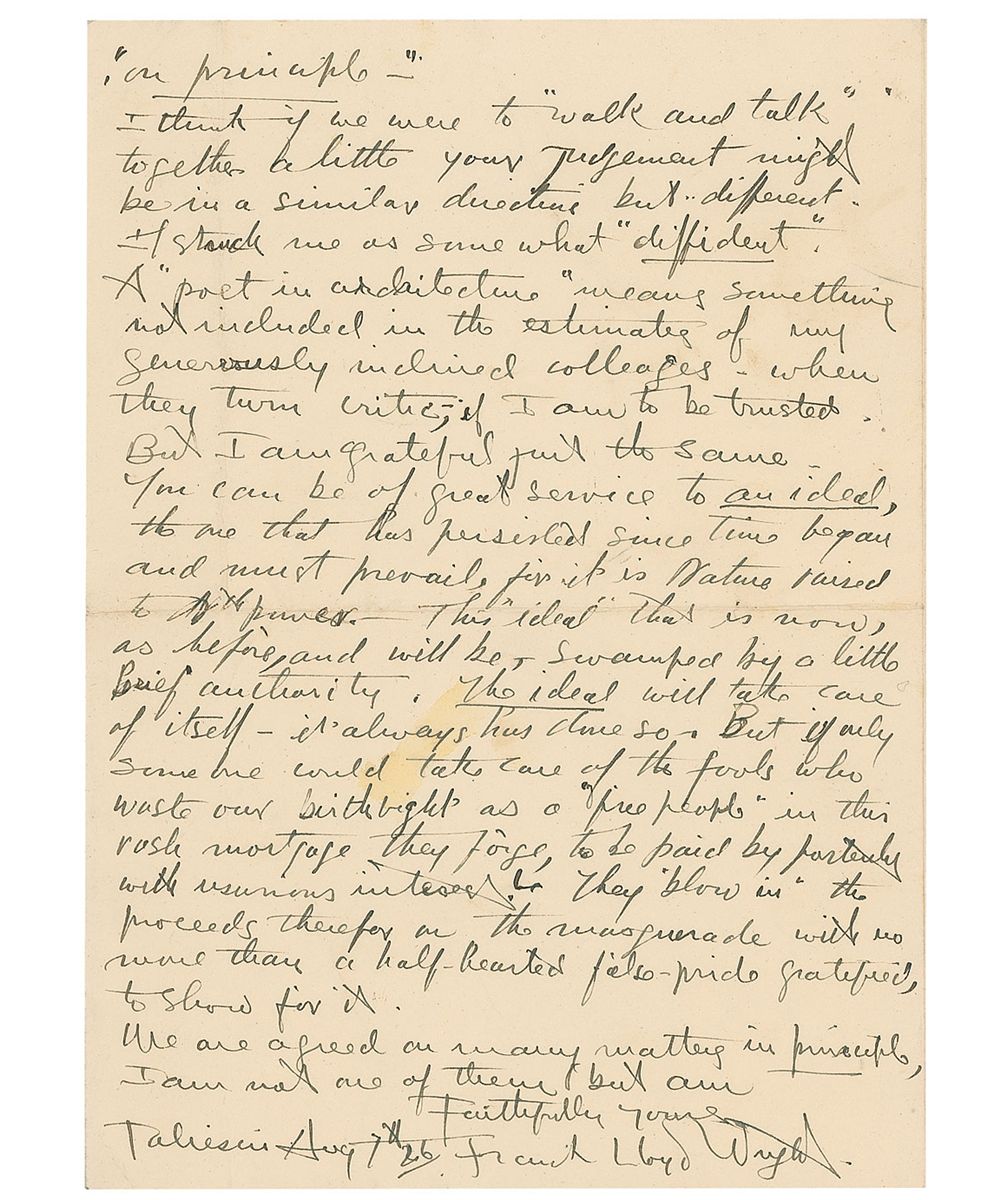 "on principle –"
I think if we were to "walk and talk"
together a little your judgement might
be in a similar direction but.. different.
It struck me as somewhat "diffident".
A "poet in architecture" means something
not included in the estimates of my
generously inclined colleages - when
they turn critic, – if I am to be trusted.
But I am grateful just the same –
You can be of great service to an ideal,
the one that has persisted since time began
and must prevail, for it is Nature raised
to Nth power. – This "ideal" that is now,
as before, and will be, – swamped by a little
brief authority. The ideal will take care
of itself – it always has done so. But if only
some one could take care of the fools who
waste our birthright as a "free people" in this
rash mortgage they forge, to be paid by posterity
with usurious interest! They "blow in" the
proceeds therefor on the masquerade with no
more than a half-hearted false-pride gratified,
to show for it.
We are agreed on many matters in principle,
I am not one of them but am
Faithfully yours
Taliesin Aug 7th 26 Frank Lloyd Wright.